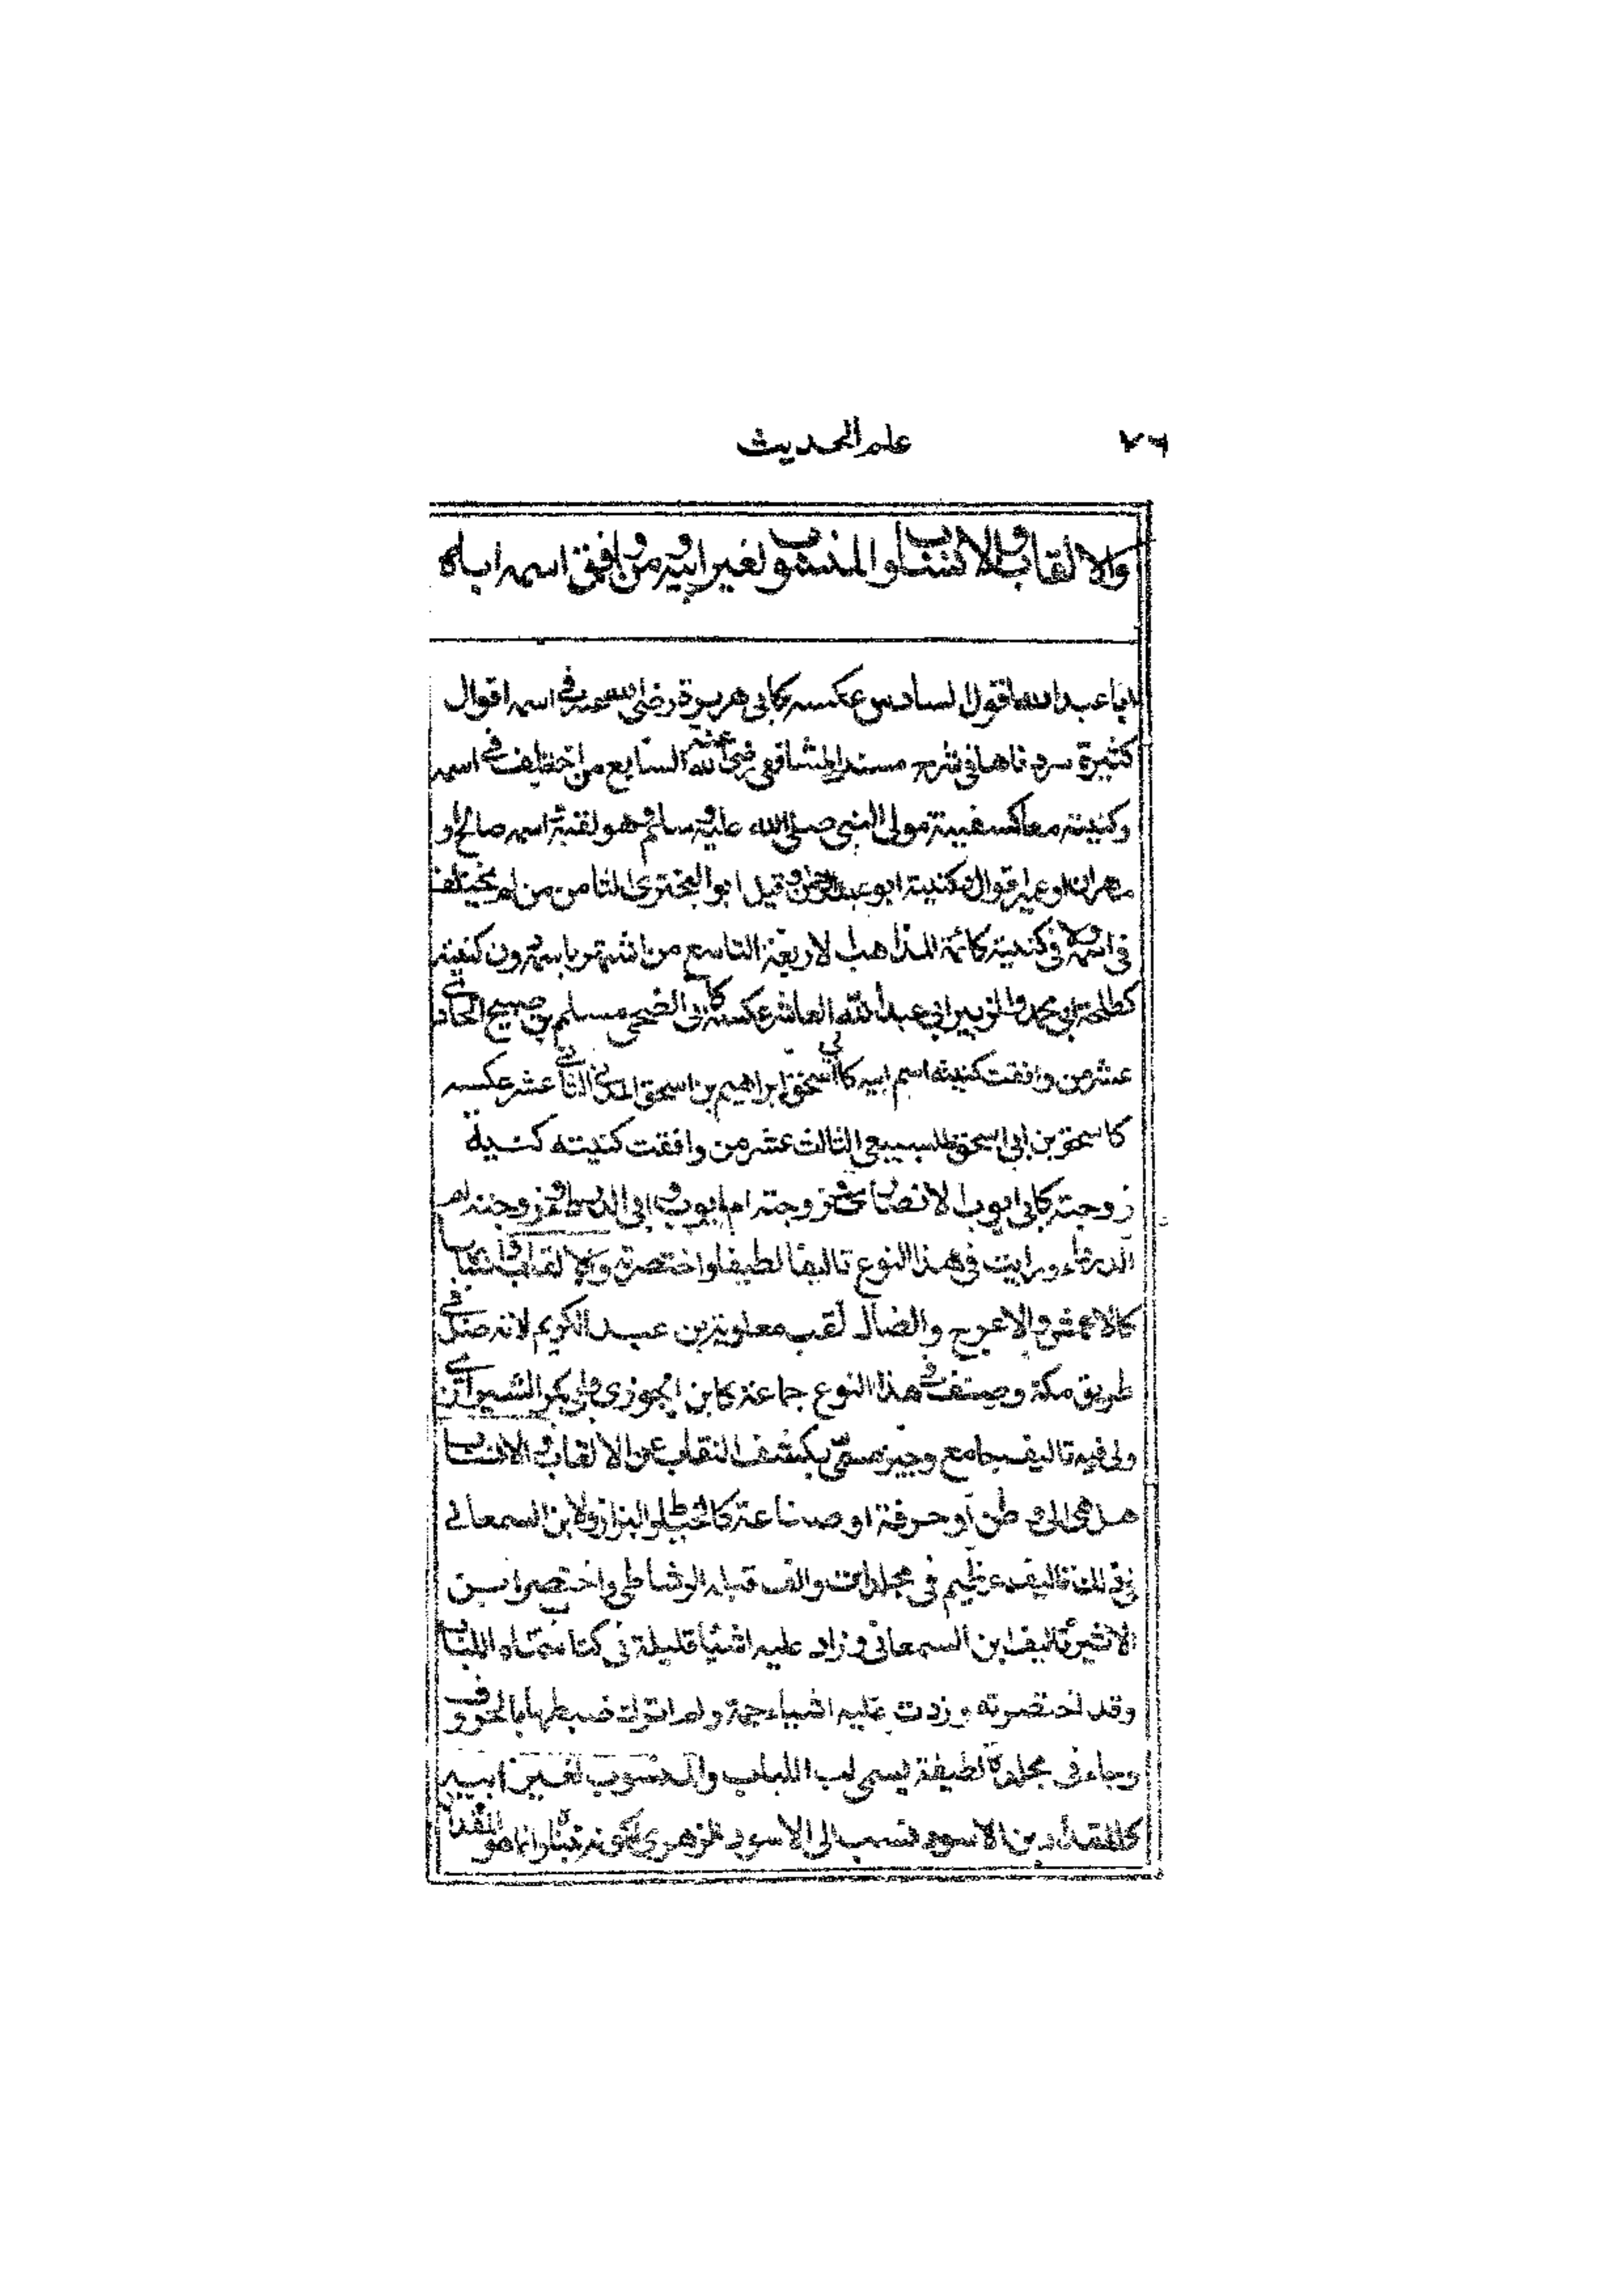 ٧٦ علم الحديث
والالقاب والانساب والمنسوب لغير ابيه ومن وافق اسمه اباه
ابا عبد الله اقوال السادس عكسه كابي هريرة رضي الله عنه في اسمه اقوال
كثيرة سردناها في شرح مسند الشافعي رضي الله عنه السابع من اختلف في اسمه
وكنيته معا كسفينة مولى النبي صلى الله عليه وسلم وهو لقبه اسمه صالح او
مهران او عمير اقوال كنيته ابو عبد الرحمن وقيل ابو البختري الثامن من لم يختلف
في اسمه ولا في كنيته كائمة المذاهب الاربعة التاسع من اشتهر باسمه دون كنيته
كطلحة ابي محمد والزبير ابي عبد الله العاشر عكسه كابي الضحى مسلم بن صبيح الحادي
عشر من وافقت كنيته اسم ابيه كابي اسحق ابراهيم بن اسحق المدني الثاني عشر عكسه
كاسحق بن ابي اسحق السبيعي الثالث عشر من وافقت كنيته كنية
زوجته كابي ايوب الانصاري زوجته ام ايوب وابي الدرداء زوجته ام
الدرداء ورايت في هذا النوع تاليفا لطيفا واختصرته والالقاب
كالاعمش والاعرج والضال لقب معاوية بن عبد الكريم لانه ضل في
طريق مكة وصنف في هذا النوع جماعة كابن الجوزي وابي بكر الشيرازي
ولي فيه تاليف جامع وجيز سمي بكشف النقاب عن الالقاب والانساب
هل هي الى وطن او حرفة او صناعة كالخياط والبزاز ولابن السمعاني
في ذلك تاليف عظيم في مجلدات والف قبله الرشاطي واختصر ابن
الاثير تاليف ابن السمعاني وزاد عليه اشياء قليلة في كتاب سماه اللباب
وقد اختصرته وزدت عليه اشياء جمة ولم اترك ضبطها بالحروف
وجاء في مجلدة لطيفة يسمى لب اللباب والمنسوب لغير ابيه
كالمقداد بن الاسود نسب الى الاسود الزهري لكونه تبناه وانما هو المقداد